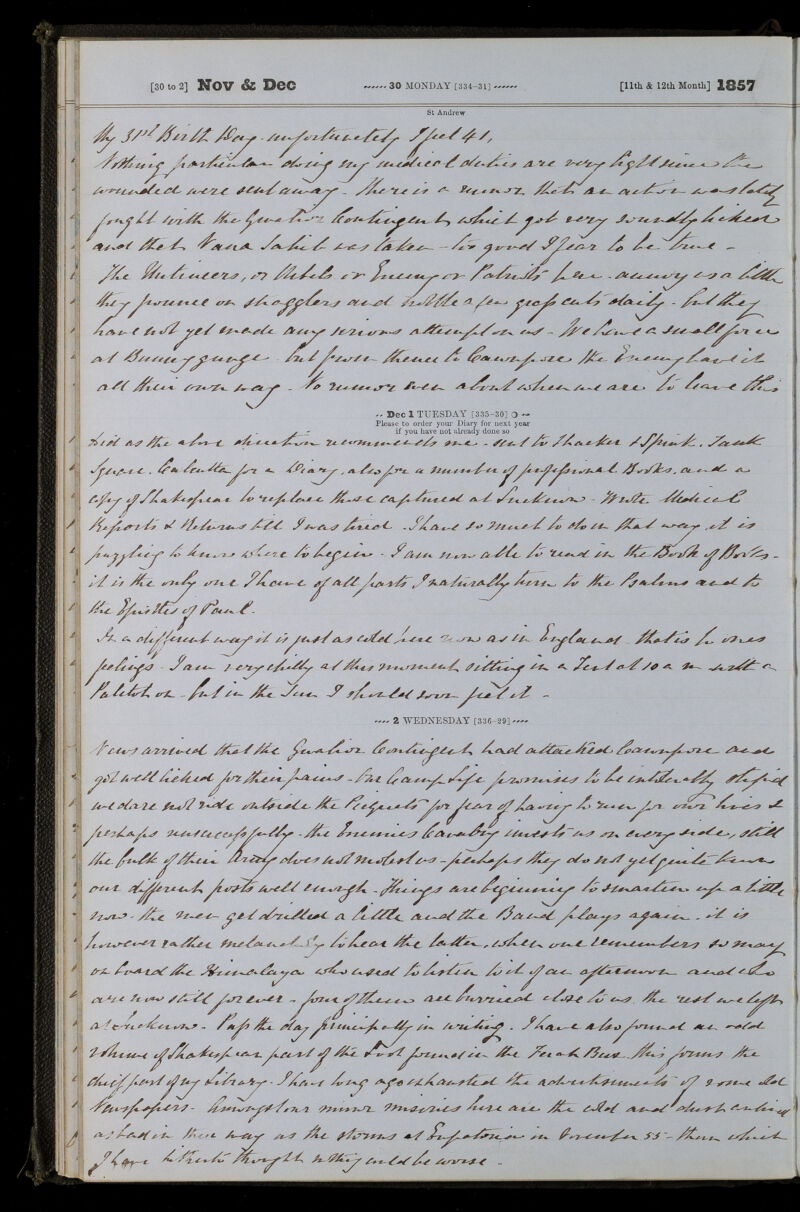 [30 to 2] Nov & Dec ...... 30 MONDAY [334-31] ...... [11th & 12th Month] 1857
St Andrew
My 31st Birth Day - unfortunately I feel 41,
Nothing particular doing my medical duties are very light since the
wounded were sent away - There is a rumor that an action was lately
fought with the Gwalior Contingent which got very soundly licked
and that Nana Sahib was taken - too good I fear to be true -
The Mutineers, or Rebels or Enemy or Patriots here - annoy us a little
they pounce on stragglers and a few grass cuts daily - but they
have not yet made any serious attempt on us - We have a small force
at Bunnygunge - but from thence to Cawnpore the Enemy have it
all their own way - No rumor even about when we are to leave this
-- Dec 1 TUESDAY [335-30] --
Please to order your Diary for next year
if you have not already done so
Did as the above direction recommends me - sent to Thacker & Spink, Tank
Square, Calcutta for a Diary, also for a number of professional Books, and a
copy of Shakespear to replace those captured at Lucknow - Wrote Medical
Reports & Returns till I was tired - I have so much to do in that way it is
puzzling to know where to begin - I am now able to read in the Book of Books -
it is the only one I have of all parts I naturally turn to the Psalms and to
the Epistles of Paul.
In a different way it is just as cold here now as in England - that is to ones
feelings - I am very chilly at this moment sitting in a Tent at 10 a m with a
Paletot on - but in the Sun I should soon feel it -
.... 2 WEDNESDAY [336-29] ....
News arrived that the Gwalior Contingent had attacked Cawnpore and
got well licked for their pains - Our Camp Life promises to be intolerably stupid
we dare not ride outside the Picquets for fear of having to run for our lives &
perhaps unsuccessfully - the Enemies Cavalry invests us on every side, still
the bulk of their Army does not molest us - perhaps they do not yet quite know
our different posts well enough - Things are beginning to smarten up a little
now - the men get drilled a little and the Band plays again - it is
however rather melancholy to hear the latter, when one remembers so many
on board the Himalaya who used to listen to it of an afternoon and who
are now still for ever - four of them are burried close to us the rest we left
at Lucknow - Pass the day principally in writing. I have also found an odd
volume of Shakespear part of the Loot found in the this forms the
chief part of my Library - I have long ago exhausted the advertisements of some old
Newspapers - Amongst our minor miseries here are the cold and dust
as bad in their way as the storms at Eupatoria in November 55 - than which
I have hitherto thought nothing could be worse -